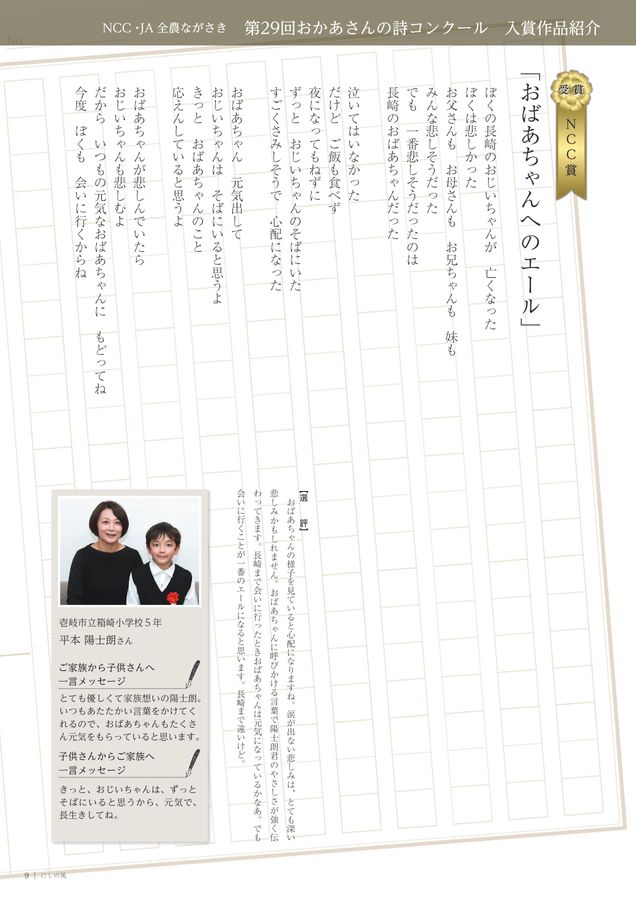 NCC・JA 全農ながさき　第29回おかあさんの詩コンクール　入賞作品紹介
No.
受賞
NCC賞
「おばあちゃんへのエール」
ぼくの長崎のおじいちゃんが　亡くなった
ぼくは悲しかった
お父さんも　お母さんも　お兄ちゃんも　妹も
みんな悲しそうだった
でも　一番悲しそうだったのは
長崎のおばあちゃんだった
泣いてはいなかった
だけど　ご飯も食べず
夜になってもねずに
ずっと　おじいちゃんのそばにいた
すごくさみしそうで　心配になった
おばあちゃん　元気出して
おじいちゃんは　そばにいると思うよ
きっと　おばあちゃんのこと
応えんしていると思うよ
おばあちゃんが悲しんでいたら
おじいちゃんも悲しむよ
だから　いつもの元気なおばあちゃんに　もどってね
今度　ぼくも　会いに行くからね
【選　評】
おばあちゃんの様子を見ていると心配になりますね。涙が出ない悲しみは、とても深い
悲しみかもしれません。おばあちゃんに呼びかける言葉で陽士朗君のやさしさが強く伝
わってきます。長崎まで会いに行ったときおばあちゃんは元気になっているかなあ。でも
会いに行くことが一番のエールになると思います。長崎まで遠いけど。
壱岐市立箱崎小学校５年
平本 陽士朗さん
ご家族から子供さんへ
一言メッセージ
とても優しくて家族想いの陽士朗。
いつもあたたかい言葉をかけてく
れるので、おばあちゃんもたくさ
ん元気をもらっていると思います。
子供さんからご家族へ
一言メッセージ
きっと、おじいちゃんは、ずっと
そばにいると思うから、元気で、
長生きしてね。
9 | にじの風